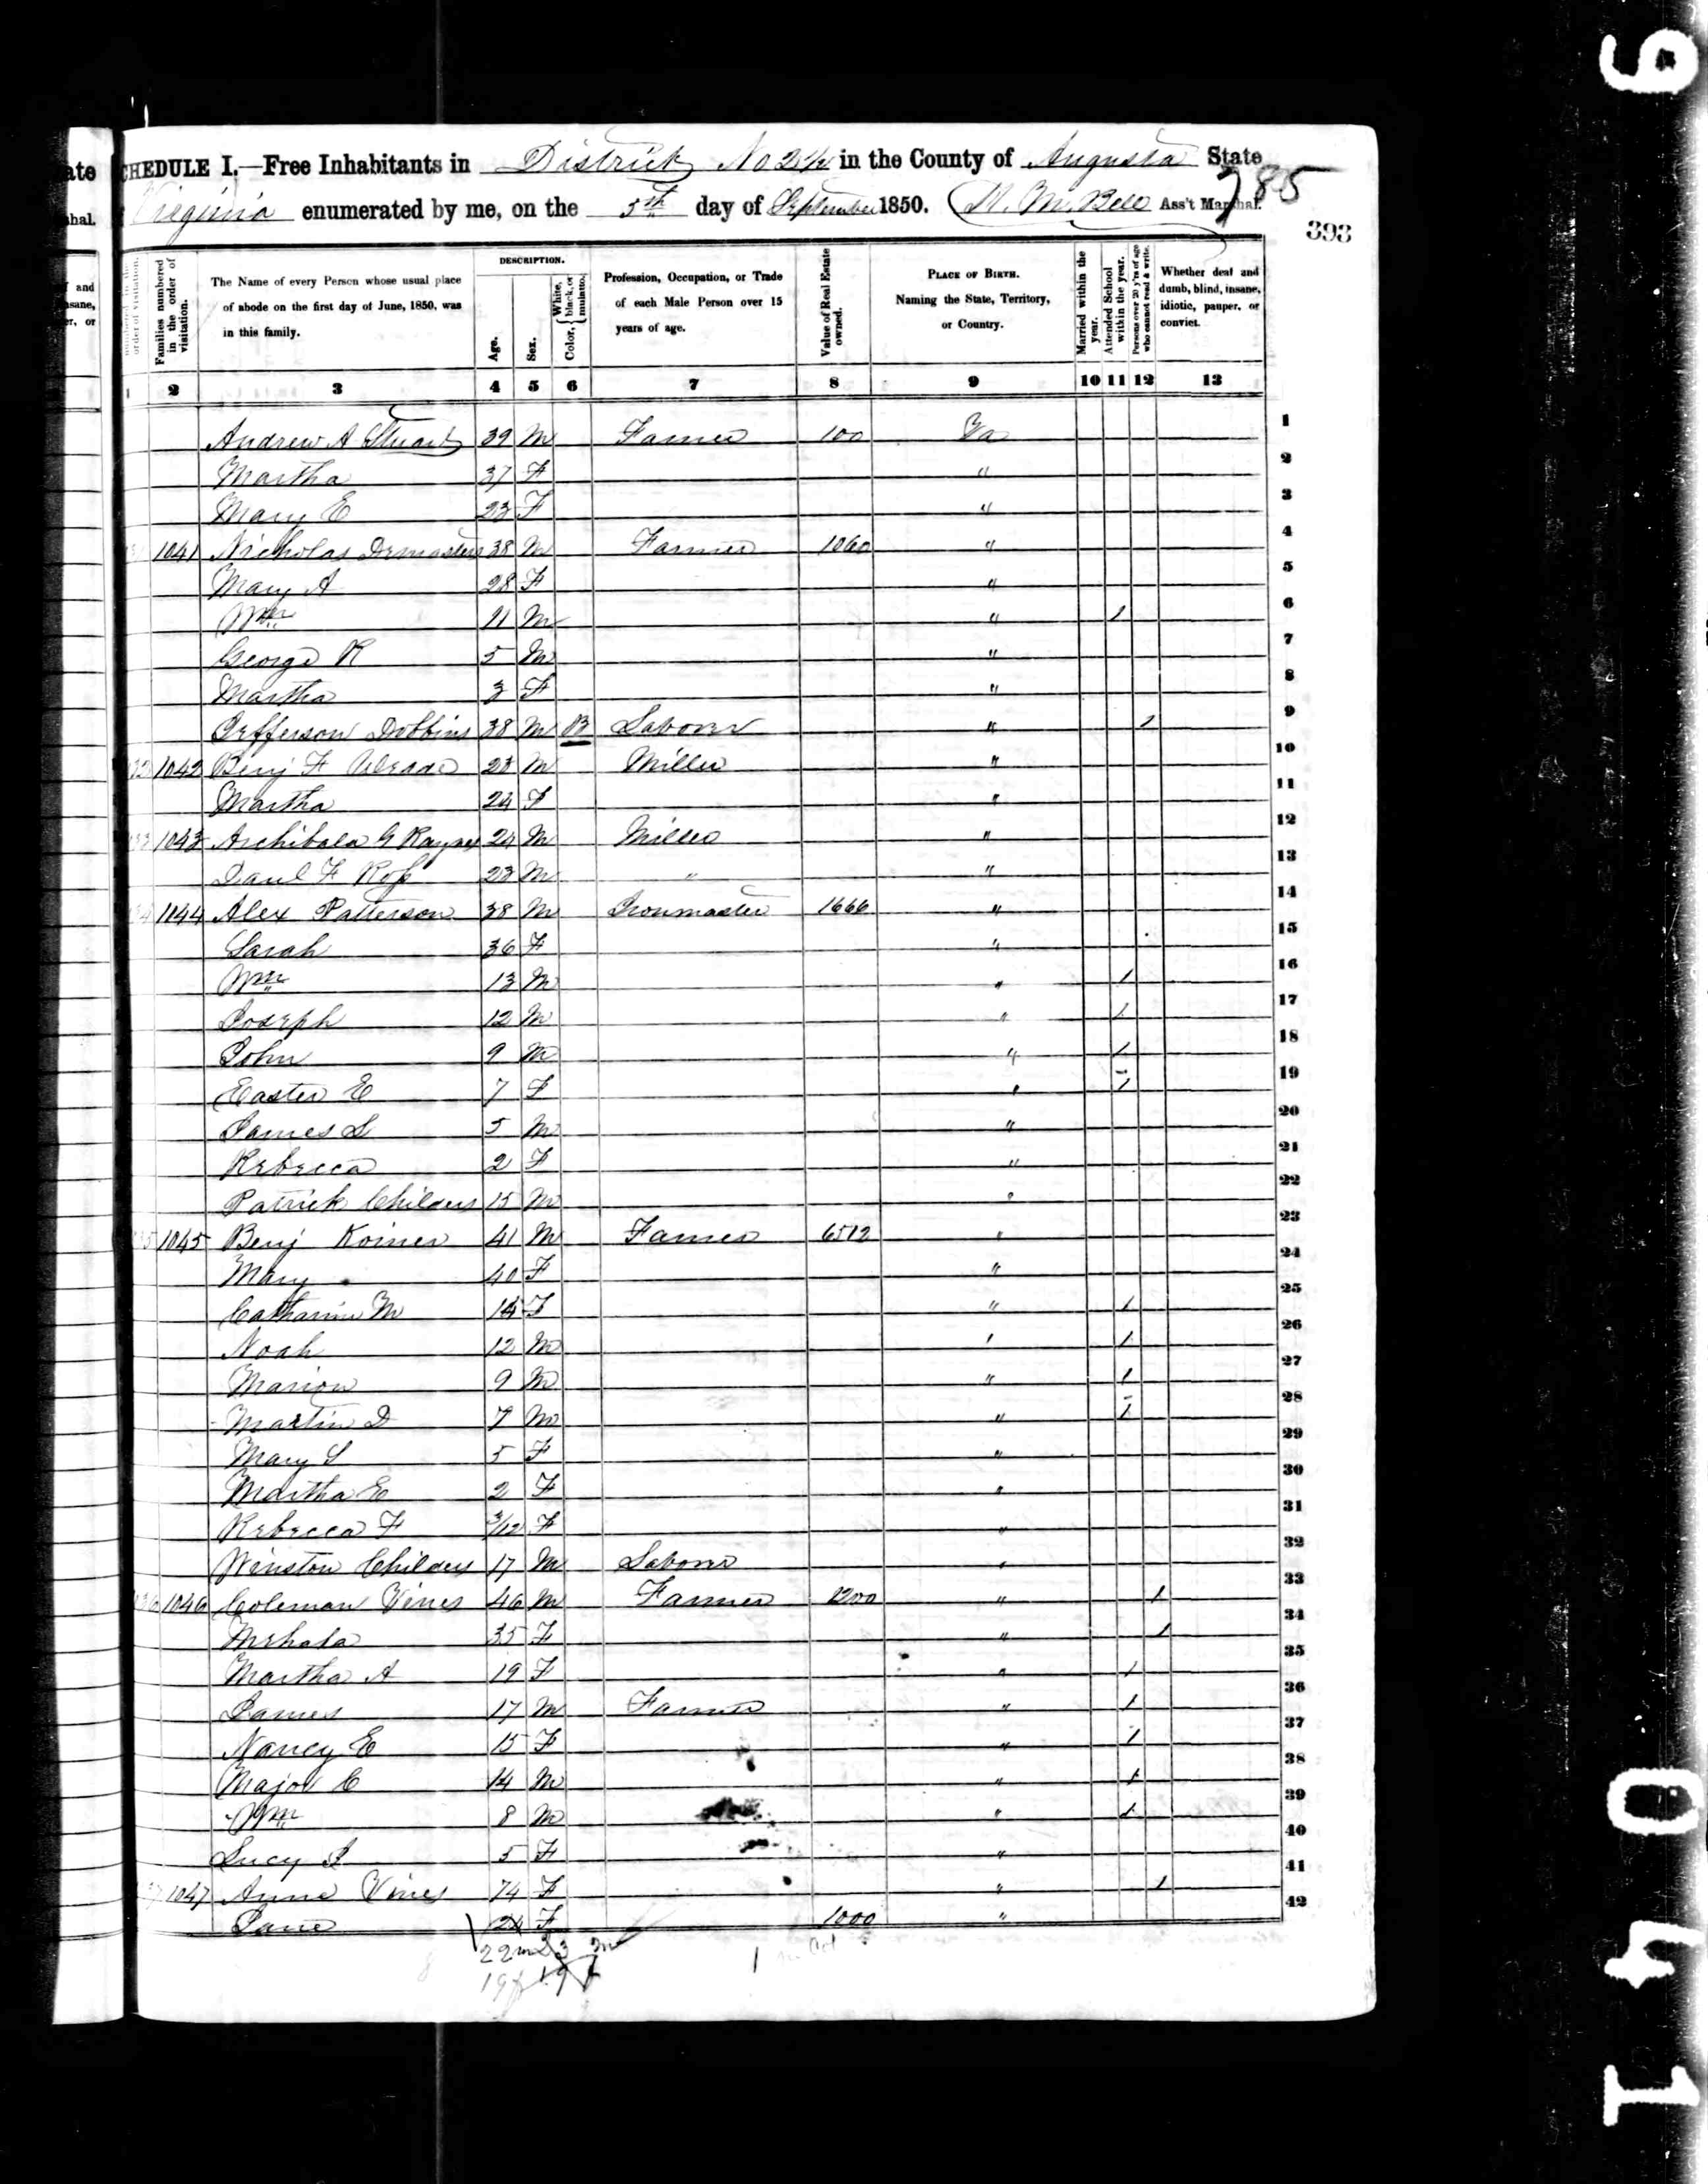 ate
CHEDULE I.—Free Inhabitants in District No 2½ in the County of Augusta State
785
hal.
Virginia enumerated by me, on the 5th day of September 1850. Ass't Marshal.
393
f and
nsane,
er, or
order of visitation.
Families numbered in the order of visitation.
The Name of every Person whose usual place of abode on the first day of June, 1850, was in this family.
DESCRIPTION.
Age.
Sex.
Color, { White, black, or mulatto.
Profession, Occupation, or Trade of each Male Person over 15 years of age.
Value of Real Estate owned.
PLACE OF BIRTH. Naming the State, Territory, or Country.
Married within the year.
Attended School within the year.
Persons over 20 y'rs of age who cannot read & write.
Whether deaf and dumb, blind, insane, idiotic, pauper, or convict.
1 2 3 4 5 6 7 8 9 10 11 12 13
Andrew A Stuart 39 M Farmer 100 Va 1
Martha 37 F " 2
Mary E 23 F " 3
1041 Nicholas Demasters 38 M Farmer 1060 " 4
Mary A 28 F " 5
Wm 11 M " 1 6
George R 5 M " 7
Martha 3 F " 8
Jefferson Dobbins 38 M B Laborer " 1 9
1042 Benj F 23 M Miller " 10
Martha 24 F " 11
1043 Archibald G 24 M Miller " 12
F 23 M " " 13
1044 Alex Patterson 38 M Ironmaster 1666 " 14
Sarah 36 F " 15
Wm 13 M " 1 16
Joseph 12 M " 1 17
John 9 M " 1 18
Easter E 7 F " 1 19
James L 5 M " 20
Rebecca 2 F " 21
Patrick Childers 15 M " 22
1045 Benj Koiner 41 M Farmer 6512 " 23
Mary 40 F " 24
Catharine M 14 F " 1 25
Noah 12 M " 1 26
Marion 9 M " 1 27
Martin D 7 M " 1 28
Mary S 5 F " 29
Martha E 2 F " 30
Rebecca F 3/12 F " 31
Winston Childers 17 M Laborer " 32
1046 Coleman Vines 46 M Farmer 1200 " 1 33
Mehala 35 F " 1 34
Martha A 19 F " 1 35
James 17 M Farmer " 1 36
Nancy E 15 F " 1 37
Major C 14 M " 1 38
Wm 8 M " 1 39
Lucy J 5 F " 40
1047 Anne Vines 74 F " 1 41
Jane 24 F 1000 " 42
22 m 23 m
19 f 19 f
1
9
0
4
1